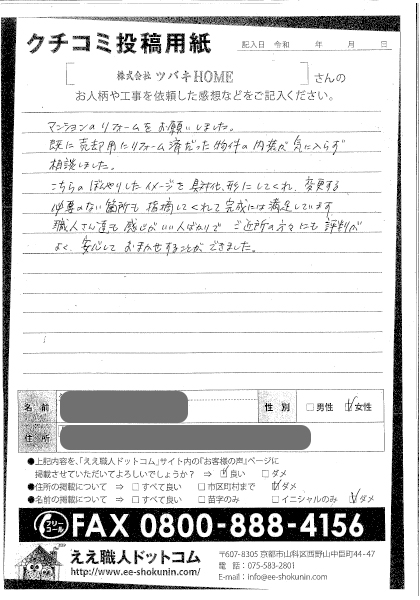 クチコミ投稿用紙
記入日 令和 年 月 日
株式会社 ツバキHOME さんの
お人柄や工事を依頼した感想などをご記入ください。
マンションのリフォームをお願いしました。
既に売却用にリフォーム済だった物件の内装が気に入らず
相談しました。
こちらのぼんやりしたイメージを具体化、形にしてくれ、変更する
必要のない箇所も指摘してくれて完成には満足しています
職人さん達も感じがいい人ばかりで ご近所の方々にも評判が
よく、安心しておまかせすることができました。
名前 性別 □男性 ☑女性
住所
●上記内容を、「ええ職人ドットコム」サイト内の『お客様の声』ページに
掲載させていただいてよろしいでしょうか？ ⇒ ☑良い □ダメ
●住所の掲載について ⇒ □すべて良い □市区町村まで ☑ダメ
●名前の掲載について ⇒ □すべて良い □苗字のみ □イニシャルのみ ☑ダメ
フリーコール FAX 0800-888-4156
ええ職人ドットコム
http://www.ee-shokunin.com/
〒607-8305 京都市山科区西野山中臣町44-47
電 話：075-583-2021
E-mail：info@ee-shokunin.com